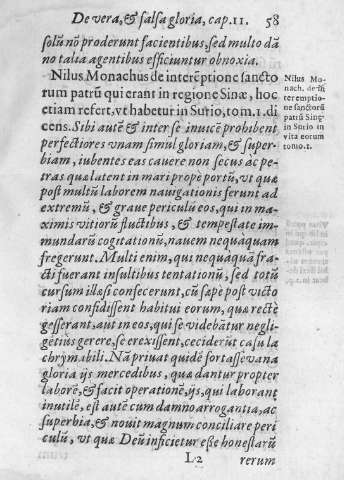 De vera, & falsa gloria, cap. 11. 58
solũ nõ proderunt facientibus, sed multo dã
no talia agentibus efficiuntur obnoxia.
Nilus Monachus de interẽptione sancto
rum patrũ qui erant in regione Sinæ, hoc
etiam refert, vt habetur in Surio, tom. 1. di
cens. Sibi autẽ & inter se inuicẽ prohibent
perfectiores vnam simul gloriam, & super-
biam, iubentes eas cauere non secus ac pe-
tras quæ latent in mari propè portũ, vt quæ
post multũ laborem nauigationis ferunt ad
extremũ, & graue periculũ eos, qui in ma-
ximis vitiorũ fluctibus, & tempestate im-
mundarũ cogitationũ, nauem nequaquam
fregerunt. Multi enim, qui nequaquã fra-
cti fuerant insultibus tentationũ, sed totũ
cursum illæsi confecerunt, cũ sæpè post victo
riam confidissent habitui eorum, quæ rectè
gesserant, aut in eos, qui se videbãtur negli-
gẽtiùs gerere, se erexissent, ceciderũt casu la
chrymabili. Nã priuat quidẽ fortasse vana
gloria ijs mercedibus, quæ dantur propter
laborẽ, & facit operationẽ, ijs, qui laborant
inutilẽ, est autẽ cum damno arrogantia, ac
superbia, & nouit magnum conciliare peri
culũ, vt quæ Deũ inficietur esse honestarũ
L2 rerum
Nilus Mo-
nach. de in
teremptio-
ne sanctorũ
patrũ Sinę
in Surio in
vita eorum
tomo. 1.